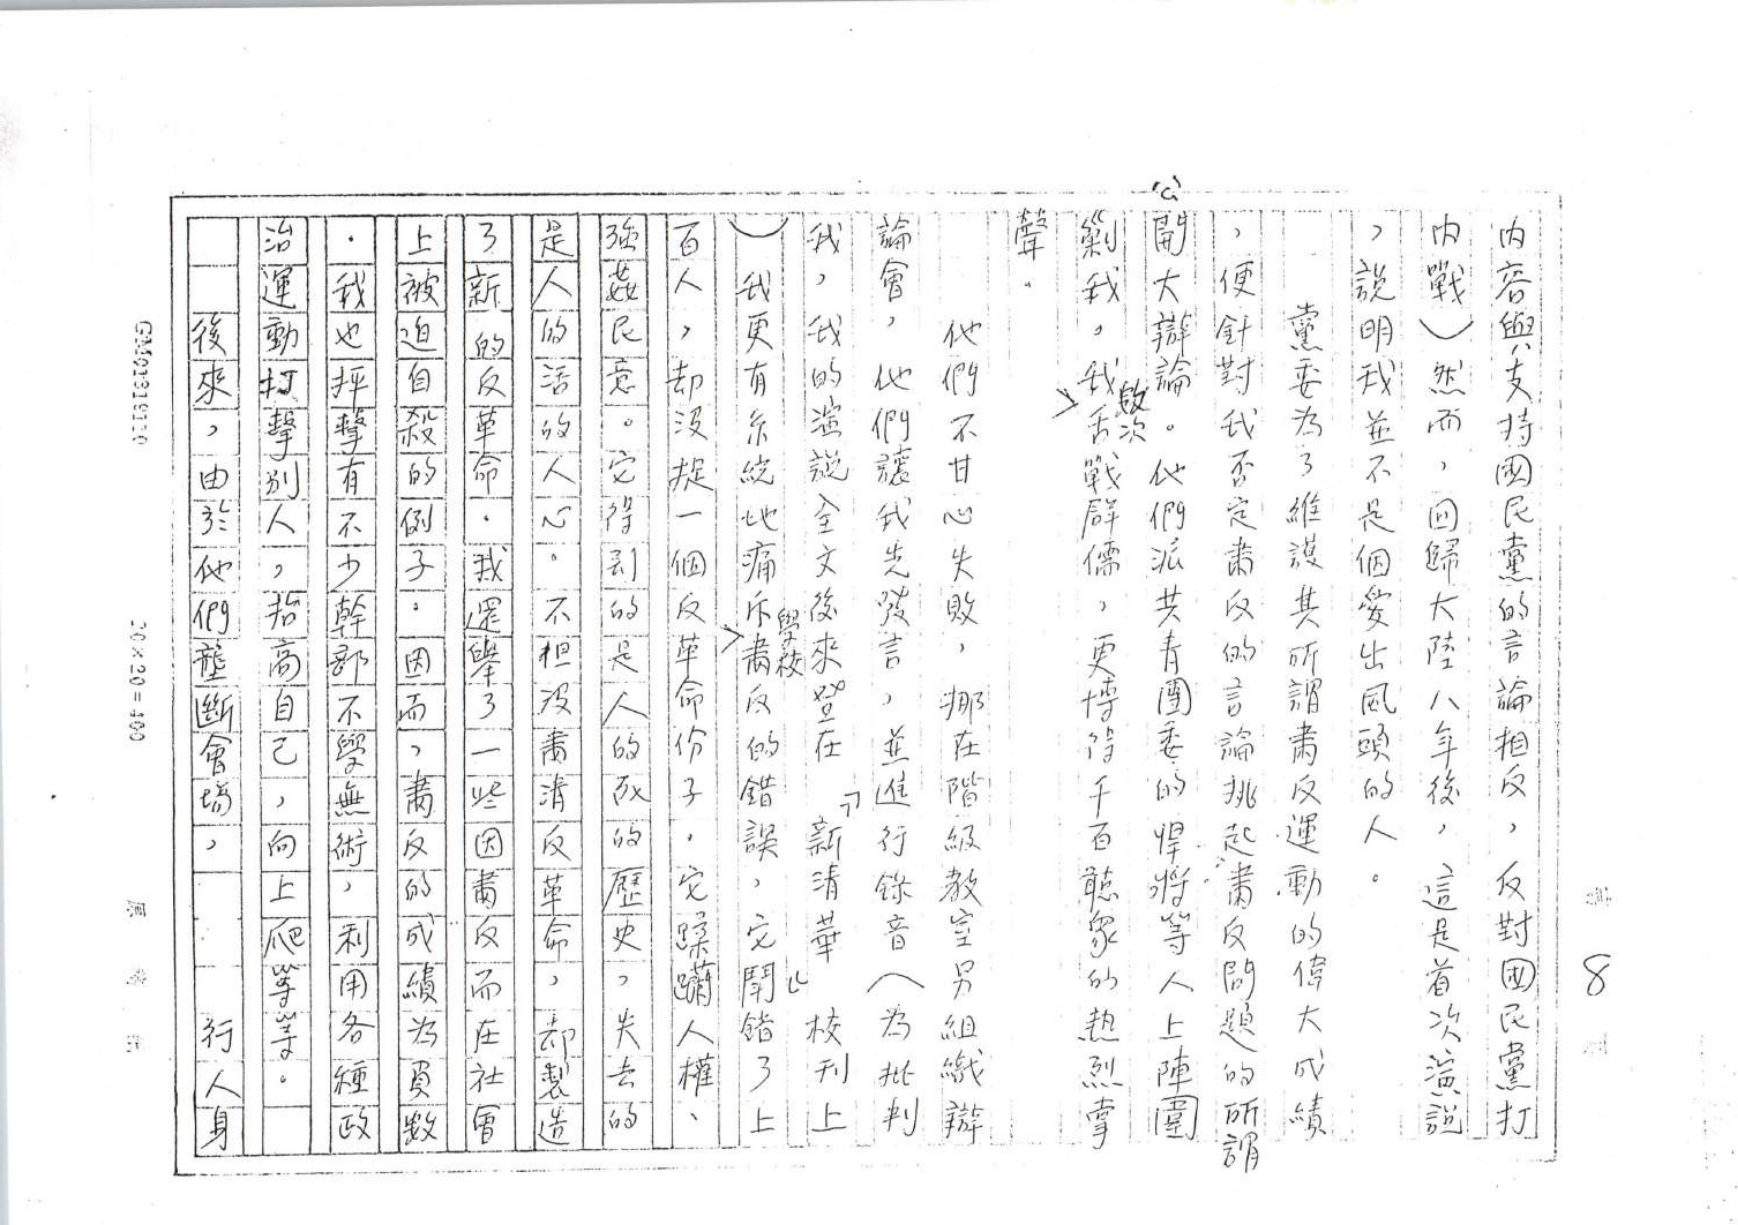 8
內容與支持國民黨的言論相反，反對國民黨打
內戰）然而，回歸大陸八年後，這是首次演說
，說明我並不是個愛出風頭的人。
黨委為了維護其所謂肅反運動的偉大成績
，便針對我否定肅反的言論挑起肅反問題的所謂
開大辯論。他們派共青團委的悍將等人上陣圍
剿我。我數次舌戰群儒，更博得千百聽眾的熱烈掌
聲。
他們不甘心失敗，挪在階級教室另組織辯
論會，他們讓我先發言，並進行錄音（為批判
我，我的演說全文後來登在「新清華」校刊上
）我更有系統地痛斥學校肅反的錯誤，它鬥錯了上
百人，却沒捉一個反革命份子．它蹂躪人權、
強姦民意。它得到的是人的死的歷史，失去的
是人的活的人心。不担沒肅清反革命，却製造
了新的反革命．我還舉了一些因肅反而在社會
上被迫自殺的例子．因而，肅反的成績為負數
．我也抨擊有不少幹部不學無術，利用各種政
治運動打擊別人，抬高自己，向上爬等等。
後來，由於他們壟斷會場，行人身
20×20=400